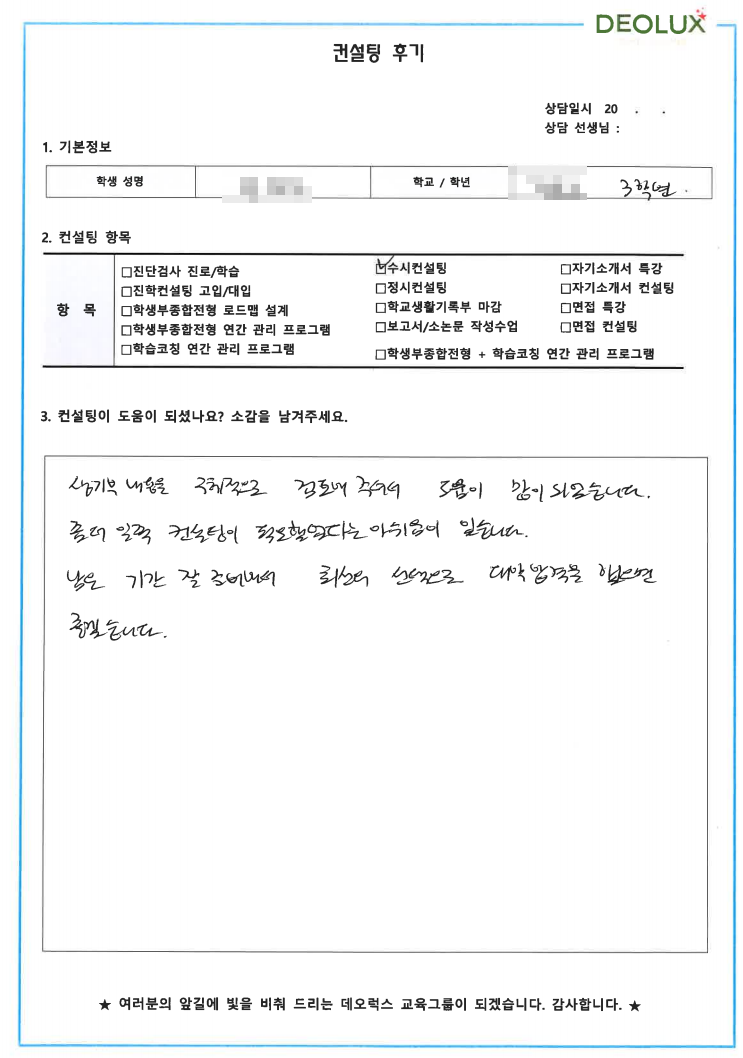 DEOLUX
컨설팅 후기
상담일시 20 . .
상담 선생님 :
1. 기본정보
학생 성명 학교 / 학년 3학년.
2. 컨설팅 항목
항 목
□진단검사 진로/학습 ☑수시컨설팅 □자기소개서 특강
□진학컨설팅 고입/대입 □정시컨설팅 □자기소개서 컨설팅
□학생부종합전형 로드맵 설계 □학교생활기록부 마감 □면접 특강
□학생부종합전형 연간 관리 프로그램 □보고서/소논문 작성수업 □면접 컨설팅
□학습코칭 연간 관리 프로그램 □학생부종합전형 + 학습코칭 연간 관리 프로그램
3. 컨설팅이 도움이 되셨나요? 소감을 남겨주세요.
생기부 내용을 구체적으로 검토해 주셔서 도움이 많이 되었습니다.
좀더 일찍 컨설팅이 필요했었다는 아쉬움이 있습니다.
남은 기간 잘 준비해서 최선의 선택으로 대학 합격을 했으면
좋겠습니다.
★ 여러분의 앞길에 빛을 비춰 드리는 데오럭스 교육그룹이 되겠습니다. 감사합니다. ★